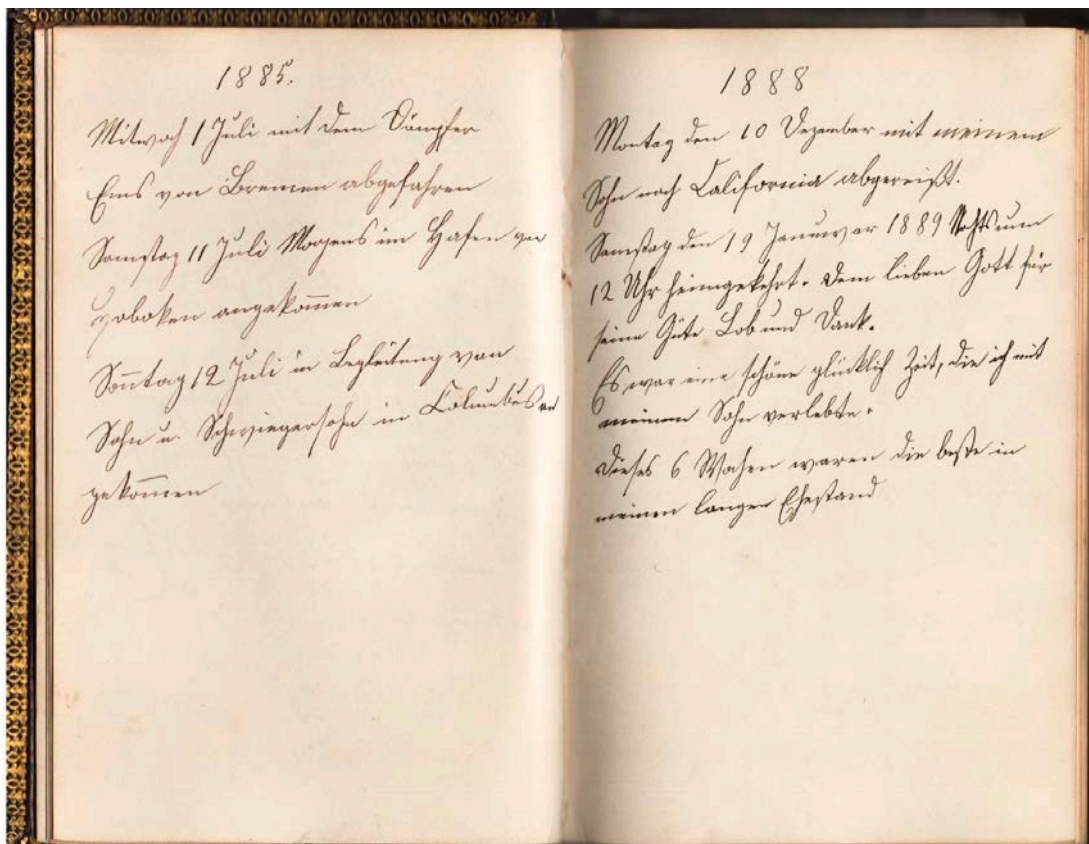 1885.
Mitwoch 1 Juli mit dem Dämpfer
Ems von Bremen abgefahren
Samstag 11 Juli Morgens im Hafen von
Hoboken angekom̄en
Son̄tag 12 Juli in Begleitung von
Sohn u. Schwiegersohn in Columbus an
gekom̄en
1888
Montag den 10 Dezember mit meinem
Sohn nach California abgereißt.
Samstag den 19 Januwar 1889 Nachts um
12 Uhr heimgekehrt. Dem lieben Gott für
seine Güte Lob und Dank.
Es war eine schöne glücklich Zeit, die ich mit
meinem Sohn verlebte.
Dieses 6 Wochen waren die beste in
meinen langen Ehestand